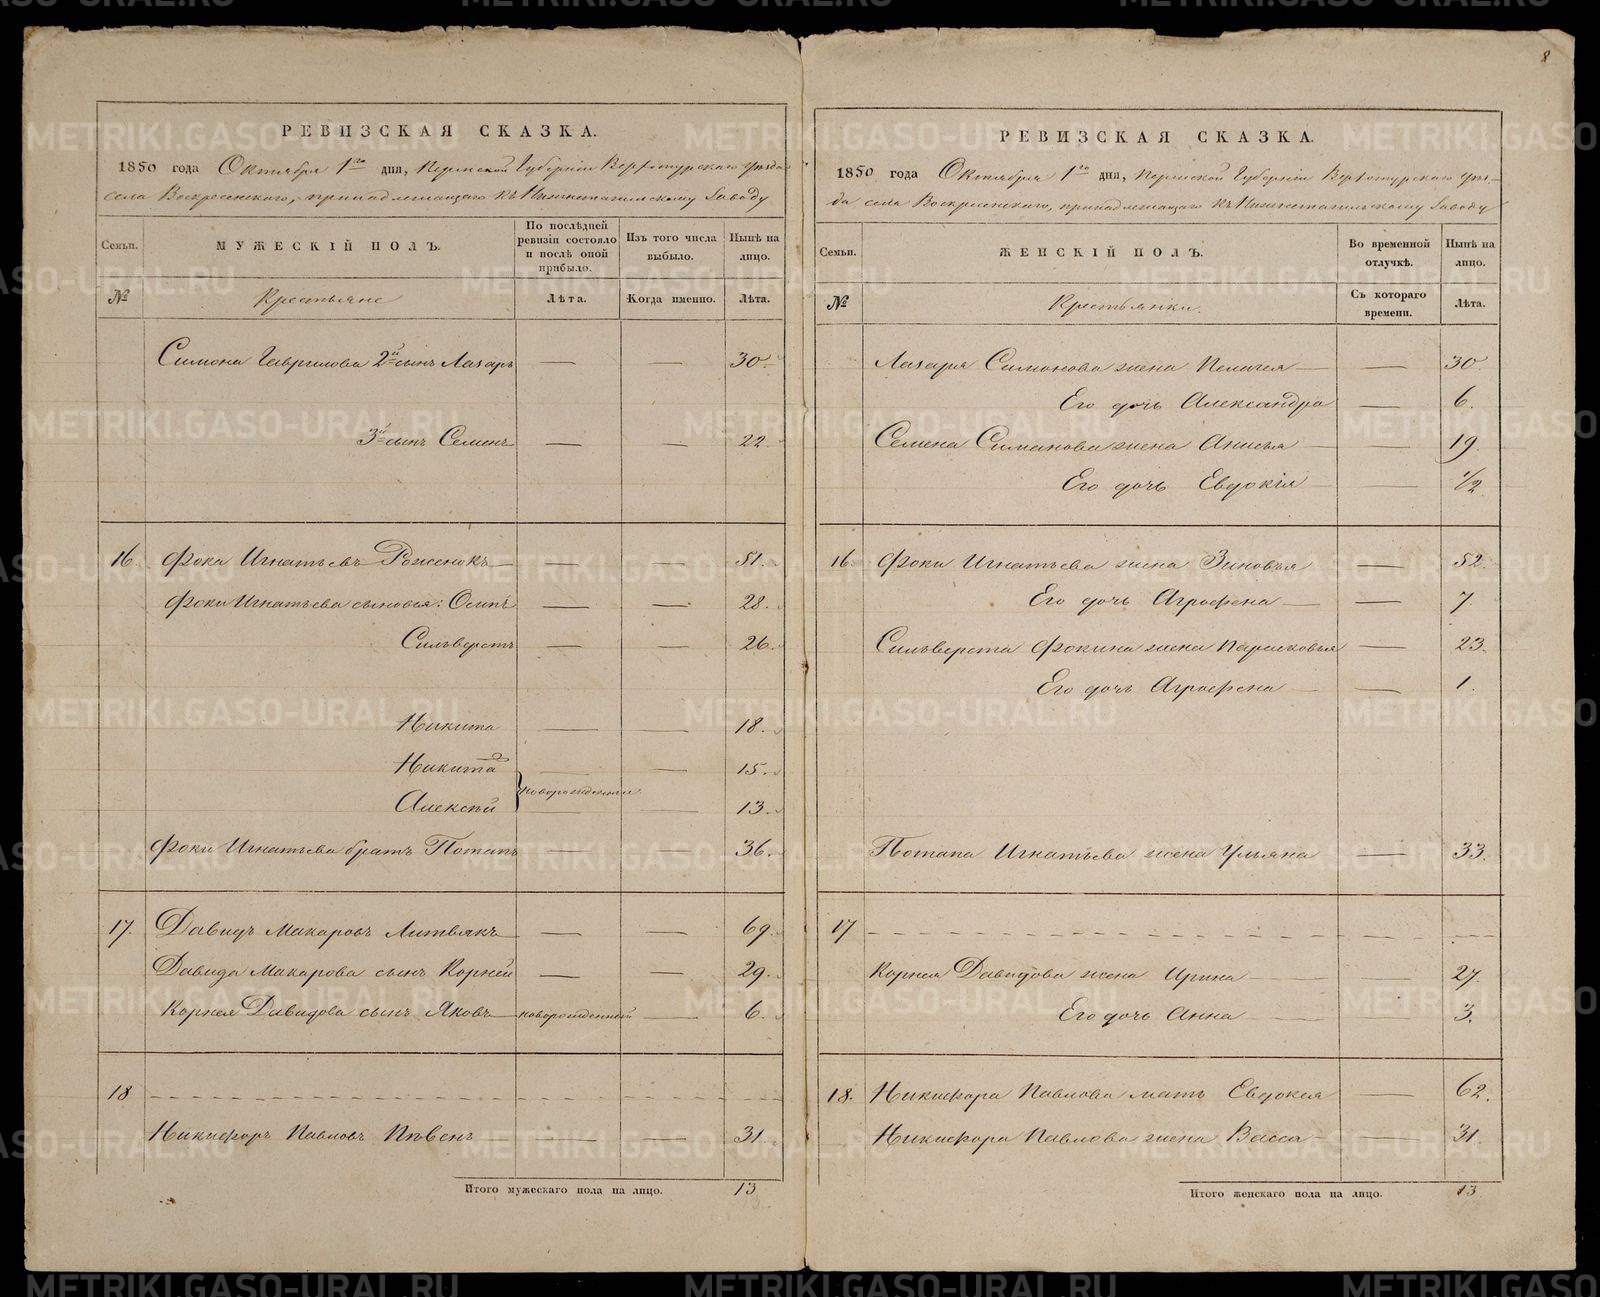 8
РЕВИЗСКАЯ СКАЗКА.
1850 года Октября 1го дня, Пермской Губерніи Верхотурскаго уѣзда
села Воскресенскаго, принадлежащаго къ Нижнетагильскому Заводу
Семьи.
МУЖЕСКІЙ ПОЛЪ.
По послѣдней ревизіи состояло и послѣ оной прибыло.
Изъ того числа выбыло.
Нынѣ на лицо.
№
Крестьяне
Лѣта.
Когда именно.
Лѣта.
Симона Гаврилова 2й сынъ Лазарь — — 30.
3й сынъ Семенъ — — 22.
16. Фока Игнатьевъ Роженокъ — — 51.
Фоки Игнатьева сыновья: Осипъ — — 28.
Сильверстъ — — 26.
Никита — — 18.
Никита 2 — — 15.
новорожденные
Алексѣй — — 13.
Фоки Игнатьева братъ Потапъ — — 36.
17. Давидъ Макаровъ Литвякъ — — 69.
Давида Макарова сынъ Корней — — 29.
Корнея Давидова сынъ Яковъ — новорожденный — 6.
18
Никифоръ Павловъ Пѣвень — — 31.
Итого мужескаго пола на лицо. 13
РЕВИЗСКАЯ СКАЗКА.
1850 года Октября 1го дня, Пермской Губерніи Верхотурскаго уѣз-
да села Воскресенскаго, принадлежащаго къ Нижнетагильскому Заводу
Семьи.
ЖЕНСКІЙ ПОЛЪ.
Во временной отлучкѣ.
Нынѣ на лицо.
№
Крестьянки.
Съ котораго времени.
Лѣта.
Лазаря Симонова жена Пелагея — — 30.
Его дочь Александра — 6.
Семена Симонова жена Анисья — — 19.
Его дочь Евдокія — — 1/2
16. Фоки Игнатьева жена Зиновья — 52.
Его дочь Агрофена — — 7.
Сильверста Фокина жена Парасковья — 23.
Его дочь Агрофена — — 1.
Потапа Игнатьева жена Ульяна — 33.
17
Корнея Давидова жена Ирина — — 27.
Его дочь Анна — — 3.
18. Никифора Павлова мать Евдокея — 62.
Никифора Павлова жена Васса — — 31.
Итого женскаго пола на лицо. 13
METRIKI.GASO-URAL.RU